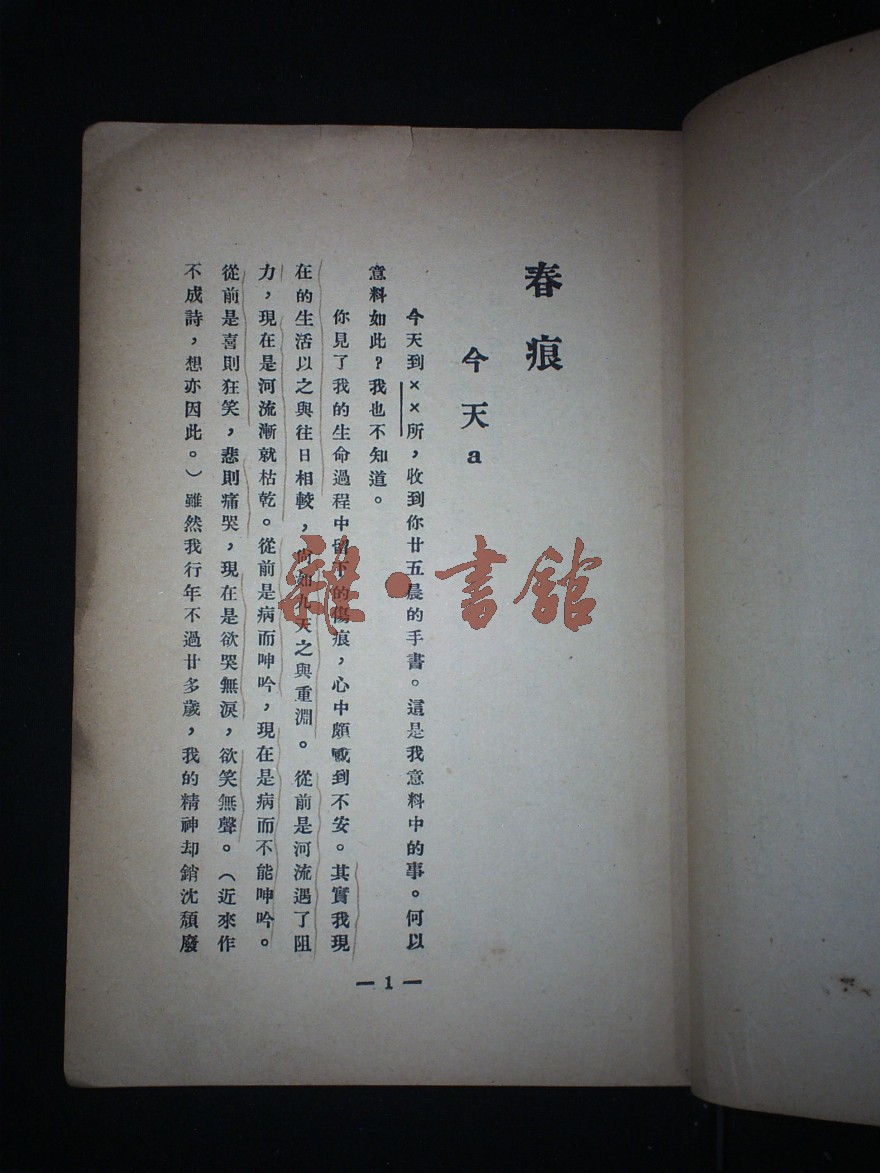 春痕
今天a
今天到××所，收到你廿五晨的手書。這是我意料中的事。何以
意料如此？我也不知道。
你見了我的生命過程中留下的傷痕，心中頗感到不安。其實我現
在的生活以之與往日相較，尚如九天之與重淵。從前是河流遇了阻
力，現在是河流漸就枯乾。從前是病而呻吟，現在是病而不能呻吟。
從前是喜則狂笑，悲則痛哭，現在是欲哭無淚，欲笑無聲。（近來作
不成詩，想亦因此。）雖然我行年不過廿多歲，我的精神却銷沈頹廢
— 1 —
雜·書館